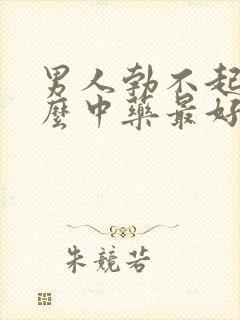 男人勃不起
麼中藥最好
朱競若